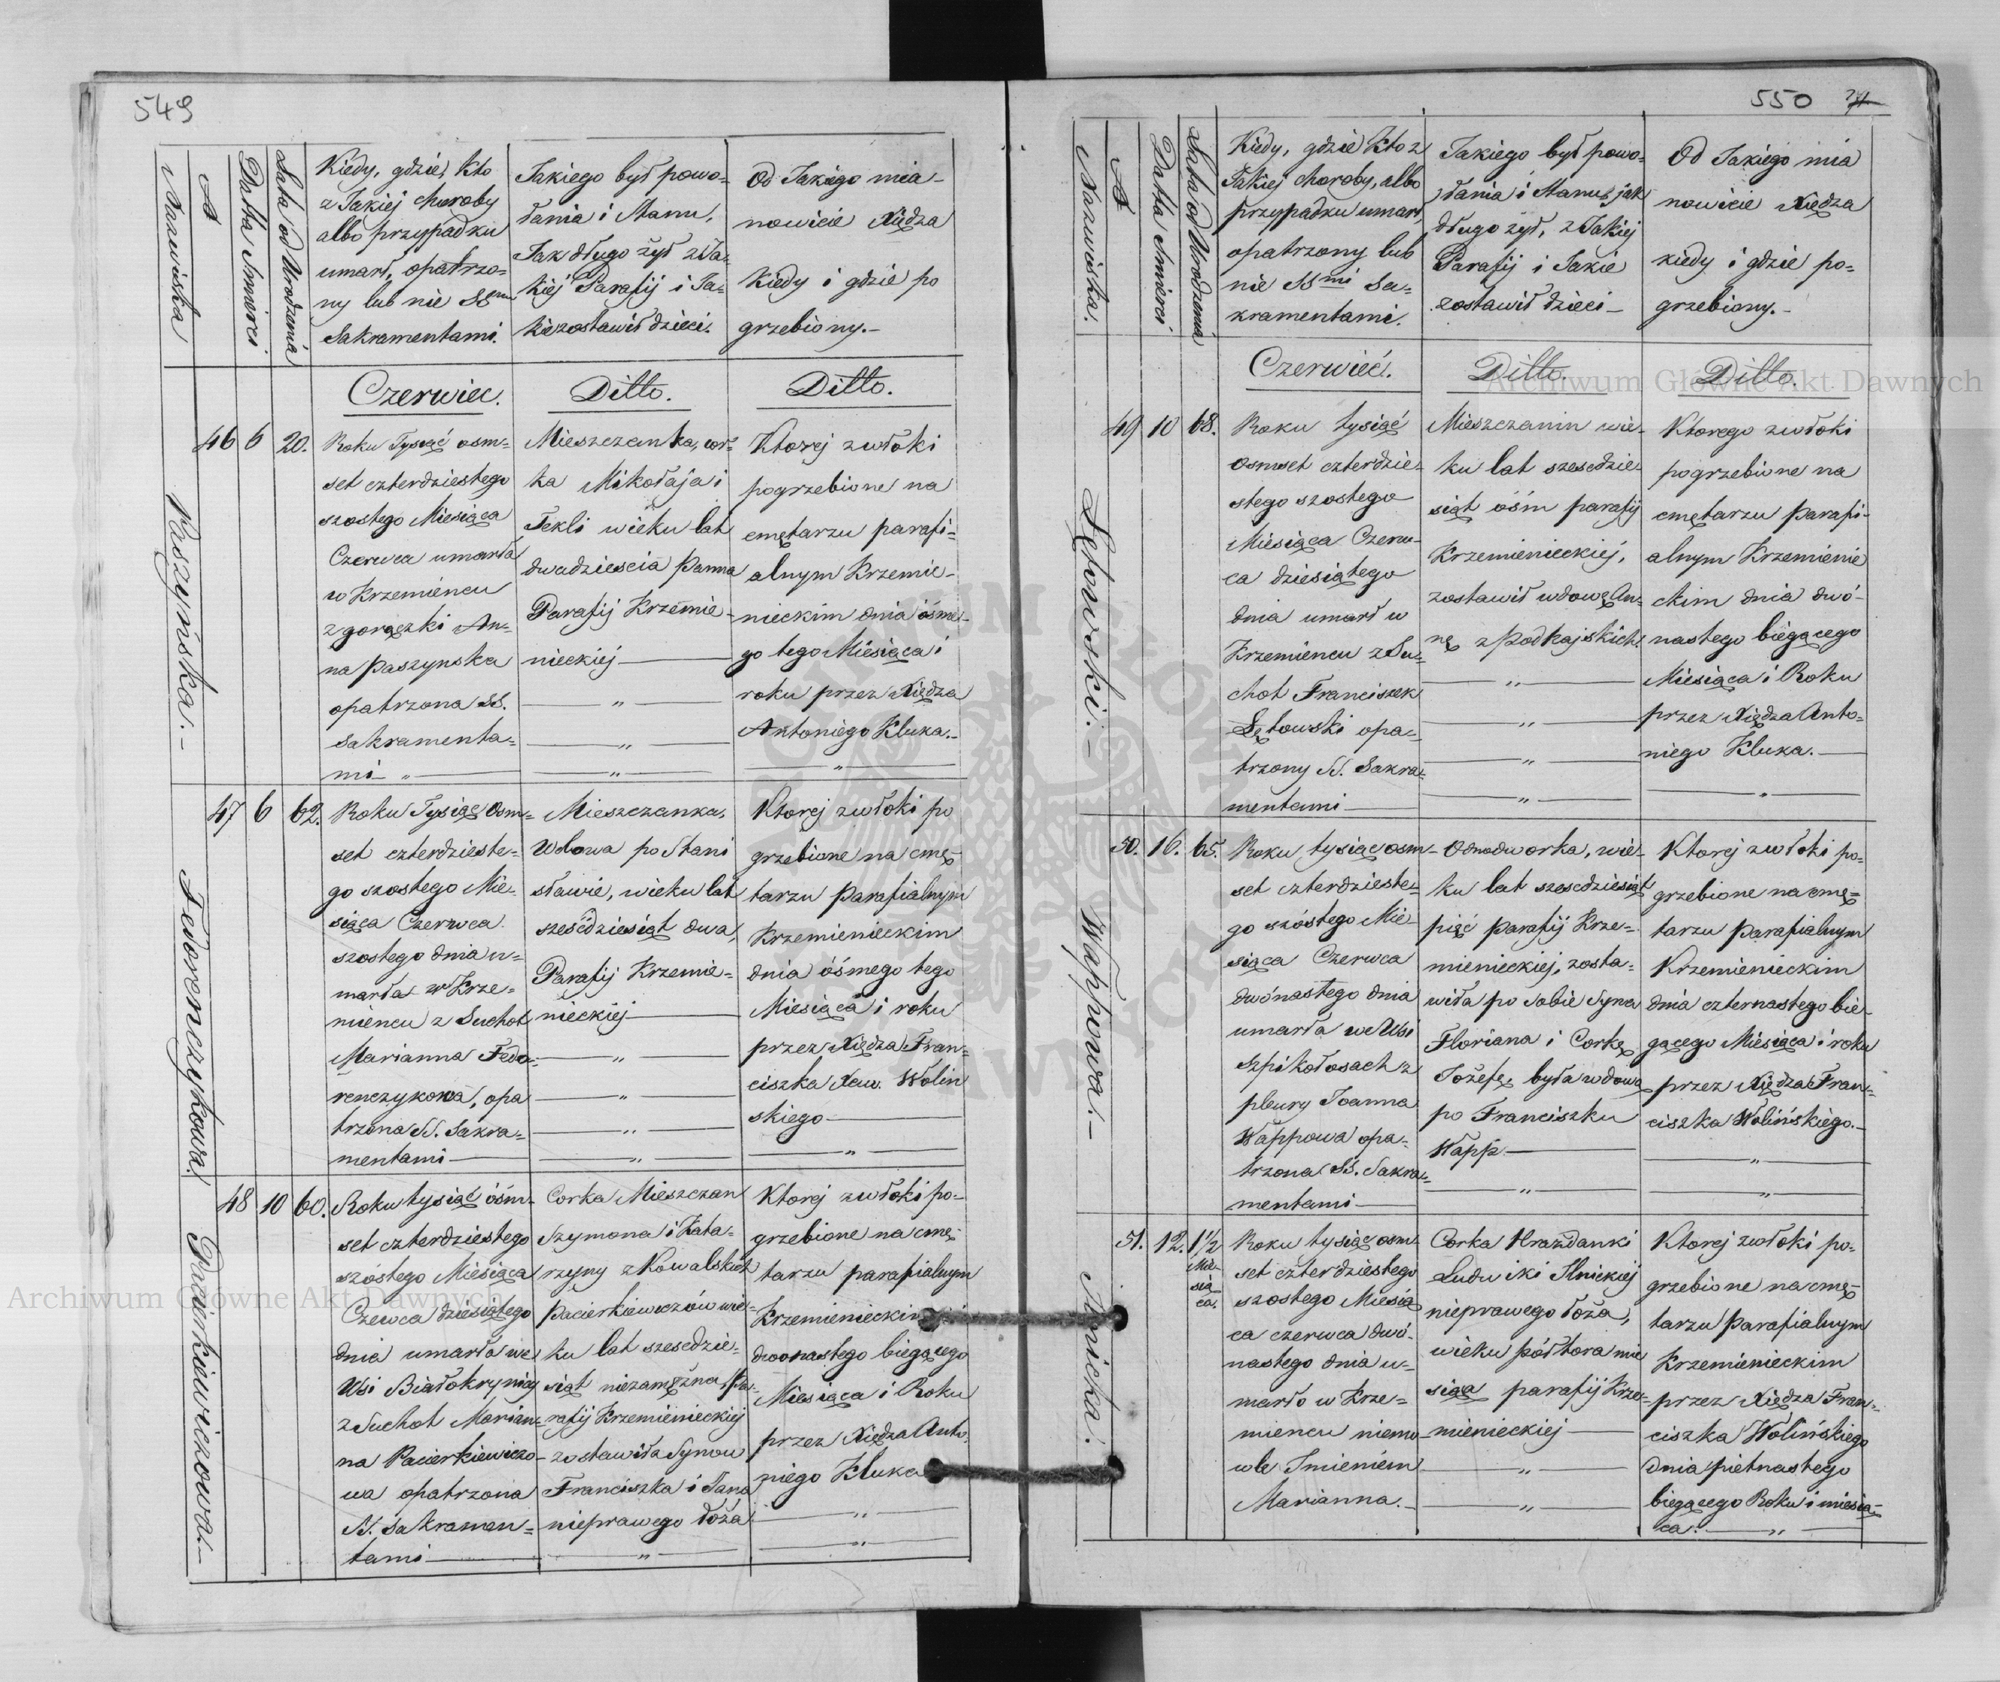 549
Nazwiska
№
Datta Smierci
Lata od Urodzenia
Kiedy, gdzie, kto
z Jakiej choroby
albo przypadku
umarł, opatrzo-
ny lub nie SSmi
Sakramentami.
Jakiego był powo-
łania i Stanu,
Jak długo żył z Ja-
kiej Parafij i Ja-
kie zostawił dzieci.
Od Jakiego mia-
nowicie Xiędza
kiedy i gdzie po
grzebiony.-
Czerwiec.
Ditto.
Ditto.
Paszyńska.-
46
6
20.
Roku Tysiąć osm-
set czterdziestego
szostego Miesiąca
Czerwca umarła
w Krzemiencu
z gorączki An-
na Paszynska
opatrzona SS.
Sakramenta-
mi-
Mieszczanka, cor-
ka Mikołaja i
Tekli wieku lat
dwadziescia panna
Parafij Krzemie-
nieckiej
Ktorej zwłoki
pogrzebione na
cmętarzu parafi-
alnym Krzemie-
nieckim dnia ósme-
go tego Miesiąca i
roku przez Xiędza
Antoniego Kluka.-
Fedorenczykowa.
47
6
62.
Roku Tysiąć Osm-
set czterdzieste-
go szostego Mie-
siąca Czerwca
szostego dnia u-
marła w Krze-
miencu z Suchot
Marianna Fedo-
renczykowa, opa
trzona SS. Sakra-
mentami
Mieszczanka,
Wdowa po Stani
sławie, wieku lat
sześćdziesiąt dwa,
Parafij Krzemie-
nieckiej
Ktorej zwłoki po
grzebione na cmę-
tarzu parafialnym
Krzemienieckim
dnia ósmego tego
Miesiąca i roku
przez Xiędza Fran-
ciszka Xaw. Wolin
skiego
Pacierkiewiczowa.-
48
10
60.
Roku tysiąć ósm-
set czterdziestego
szóstego Miesiąca
Czewca dziesiątego
dnia umarła we
Wsi Białokrynicy
z Suchot Marian-
na Pacierkiewiczo-
wa opatrzona
SS. Sakramen-
tami
Corka Mieszczan
Szymona i Kata-
rzyny z Kowalskich
Pacierkiewiczów wie-
ku lat szescdzie-
siąt niezamężna, Pa-
rafij Krzemienieckiej
zostawiła Synow
Franciszka i Jana
nieprawego łoża
Ktorej zwłoki po-
grzebione na cmę-
tarzu parafialnym
Krzemienieckim
dwonastego biegącego
Miesiąca i Roku
przez Xiędza Anto-
niego Kluka
550
Nazwiska.
№
Datta Smierci
Lata od Urodzenia
Kiedy, gdzie kto z
Jakiej choroby, albo
przypadku umarł
opatrzony lub
nie SSmi Sa-
kramentami.
Jakiego był powo-
łania i Stanu, jak
długo żył, z Jakiej
Parafij i Jakie
zostawił dzieci-
Od Jakiego mia
nowicie Xiędza
kiedy i gdzie po-
grzebiony.-
Czerwieć.
Ditto.
Ditto.
Łętowski.-
49
10
68.
Roku tysiąć
osmset czterdzie-
stego szostego
Miesiąca Czerw-
ca dziesiątego
dnia umarł w
Krzemiencu z Su-
chot Franciszek
Łętowski opa-
trzony SS. Sakra-
mentami
Mieszczanin wie-
ku lat szescdzie-
siąt óśm parafij
Krzemienieckiej,
zostawił wdowę An-
nę z Podkajskich.
Ktorego zwłoki
pogrzebione na
cmętarzu parafi-
alnym Krzemienie
ckim dnia dwó-
nastego biegącego
Miesiąca i Roku
przez Xiędza Anto-
niego Kluka.-
Wappowa.-
50.
16.
65.
Roku tysiąc osm-
set czterdzieste-
go szóstego Mie-
siąca Czerwca
dwónastego dnia
umarła we Wsi
Szpikołosach z
pleury Joanna
Wappowa opa-
trzona SS. Sakra-
mentami
Odnodworka, wie-
ku lat szescdziesiąt
pięć parafij Krze-
mienieckiej, zosta-
wiła po sobie Syna
Floriana i Corkę
Józefę, była wdową
po Franciszku
Wapp
Ktorej zwłoki po-
grzebione na cmę-
tarzu parafialnym
Krzemienieckim
dnia czternastego bie-
gącego Miesiąca i roku
przez Xiędza Fran-
ciszka Wolińskiego.-
Ilnicka.
51.
12.
1 1/2
Mie-
sią-
ca.
Roku tysiąc osm
set czterdziestego
szostego Miesią
ca czerwca dwó-
nastego dnia u-
marło w Krze-
miencu niemo
wle Imieniem
Marianna.-
Corka Hrażdanki
Ludwiki Ilnickiej
nieprawego łoża,
wieku półtora mie
siąca parafij Krze-
mienieckiej
Ktorej zwłoki po-
grzebione na cmę-
tarzu parafialnym
Krzemienieckim
przez Xiędza Fran-
ciszka Wolińskiego
dnia piętnastego
biegącego Roku i miesią-
ca.
Archiwum Główne Akt Dawnych
Archiwum Główne Akt Dawnych